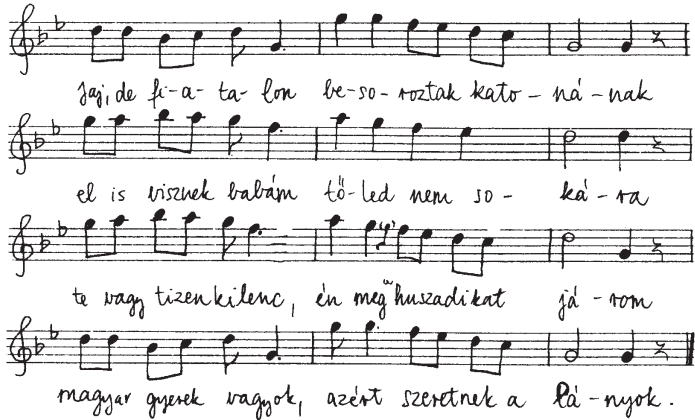 Jaj, de fi-a-ta-lon be-so-roztak kato-ná-nak
el is visznek babám tő-led nem so-ká-ra
te vagy tizenkilenc, én meg huszadikat já-rom
magyar gyerek vagyok, azért szeretnek a lá-nyok.